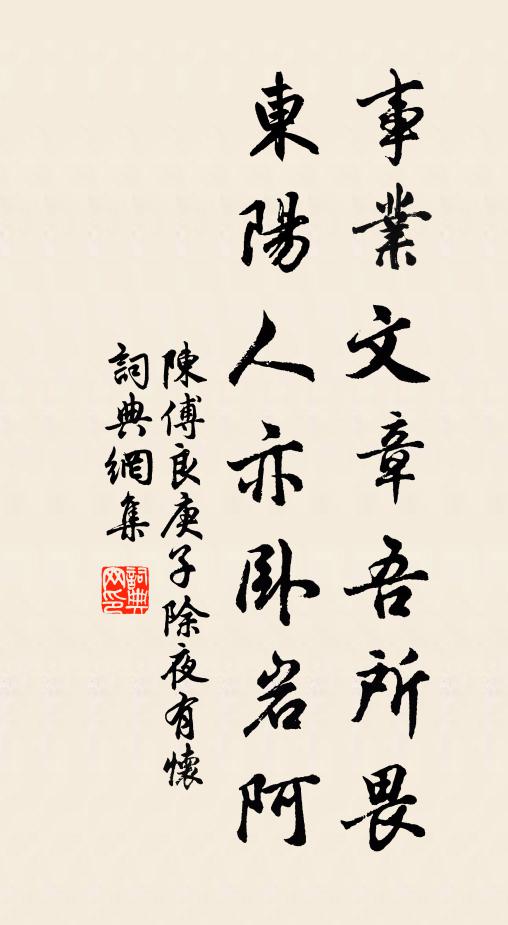 事業文章吾所畏
東陽人亦卧岩阿
陳傅良庚子除夜有懷
詞典網集
詞典网印